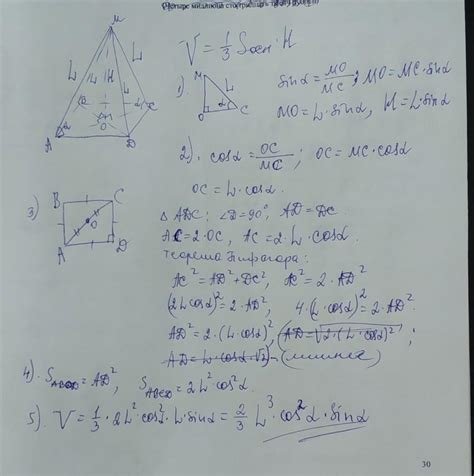 M
L L H L L
B C
A α O D
V = 1/3 Sосн · H
1) M L O α C
sinα = MO/MC; MO = MC · sinα
MO = L · sinα, H = L · sinα
2) cosα = OC/MC; OC = MC · cosα
OC = L · cosα.
3) B C O A D
△ ADC: ∠D = 90°, AD = DC
AC = 2 · OC, AC = 2 · L · cosα.
Теорема Пифагора:
AC² = AD² + DC², AC² = 2 · AD²
(2L cosα)² = 2 · AD², 4 · (L · cosα)² = 2 · AD²
AD² = 2 · (L · cosα)², AD = √2 · (L · cosα)²;
AD = L · cosα · √2 - (лишнее)
4) SABCD = AD², SABCD = 2L² cos²α
5) V = 1/3 · 2L² · cos²α · L · sinα = 2/3 L³ · cos²α · sinα
30